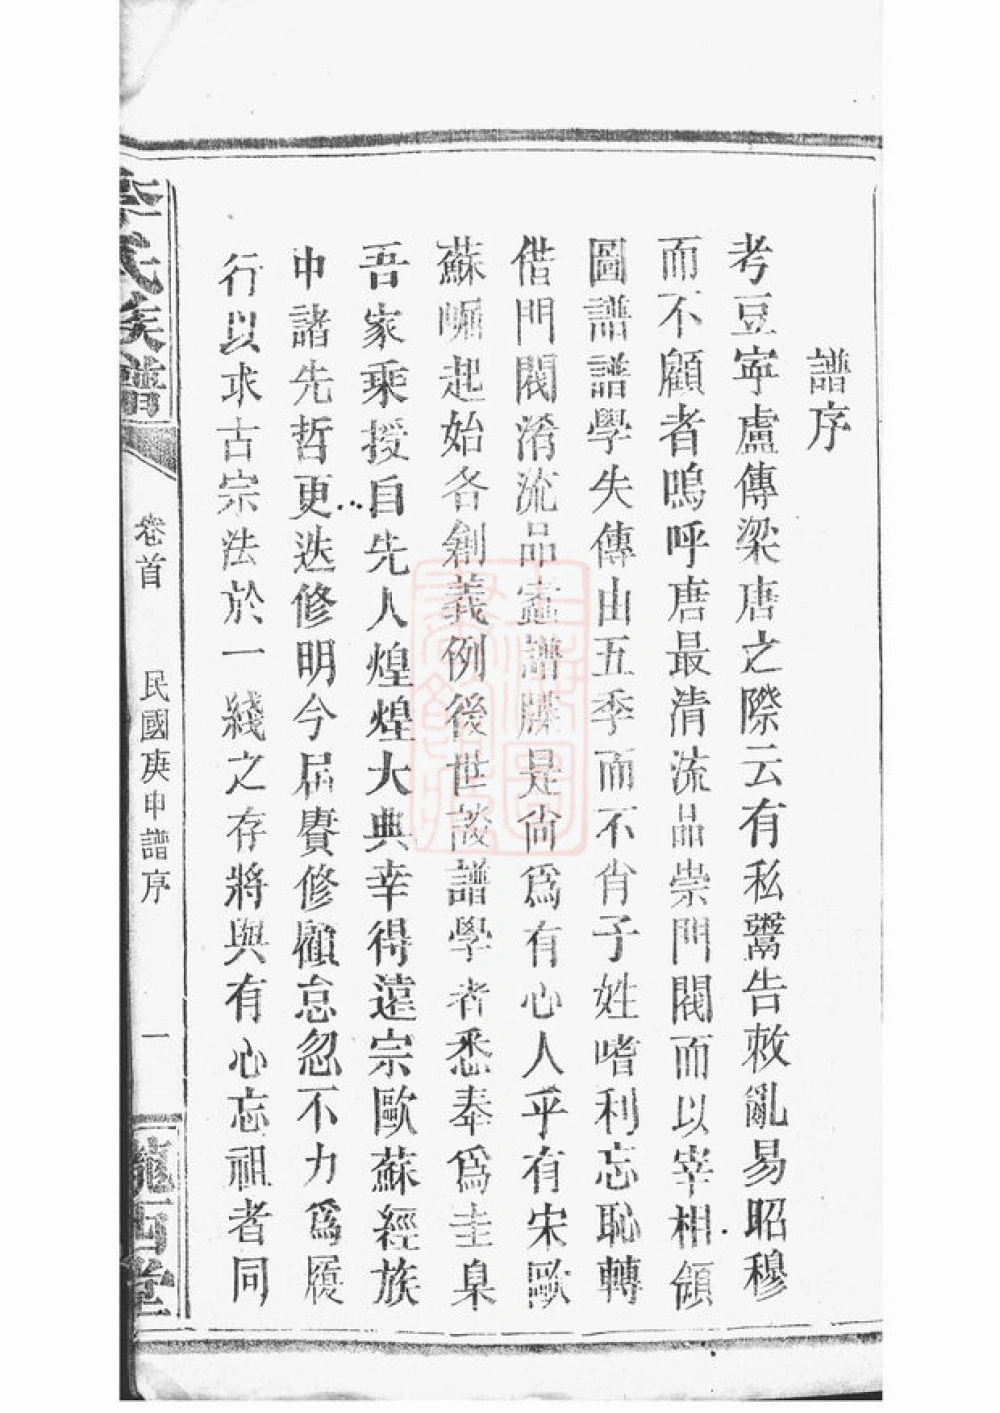 譜序
考豆寧盧傳梁唐之際云有私鬻告敕亂易昭穆
而不顧者嗚呼唐最清流品崇門閥而以宰相領
圖譜譜學失傳由五季而不肖子姓嗜利忘恥轉
借門閥淆流品蠹譜牒是尚為有心人乎有宋歐
蘇崛起始各創義例後世談譜學者悉奉為圭臬
吾家乘授自先人煌煌大典幸得遠宗歐蘇經族
申諸先哲更迭修明今屆賡修顧怠忽不力為履
行以求古宗法於一綫之存將與有心忘祖者同
李氏族譜
卷首
民國庚申譜序
一
隴西堂